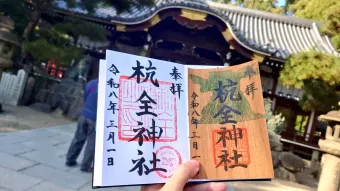 奉拝
杭全神社
令和八年三月一日
奉拝
杭全神社
令和八年三月一日